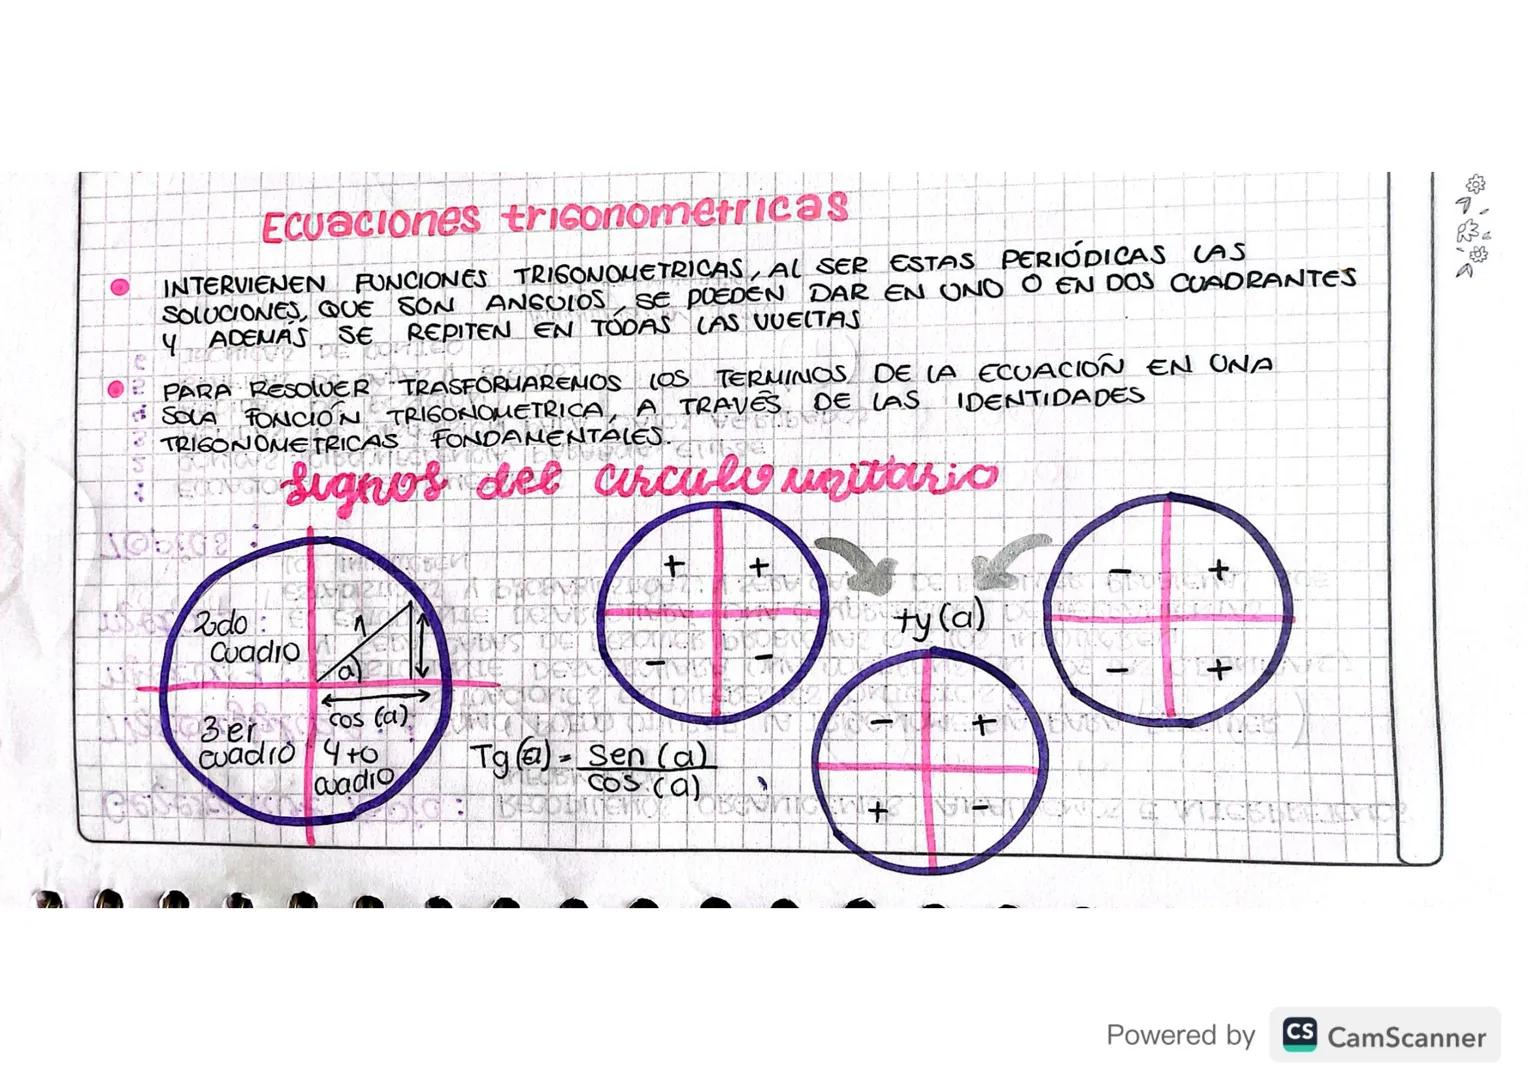 Ecuaciones trigonometricas
INTERVIENEN FUNCIONES TRIGONOMETRICAS, AL SER ESTAS PERIÓDICAS LAS
SOLUCIONES, QUE SON ANGULOS, SE PUEDEN DAR EN UNO O EN DOS CUADRANTES
Y ADEMÁS SE REPITEN EN TODAS LAS VUELTAS
PARA RESOLVER TRASFORMAREMOS LOS TERMINOS DE LA ECUACIÓN EN UNA
SOLA FUNCIÓN TRIGONOMETRICA, A TRAVÉS DE LAS IDENTIDADES
TRIGONOMETRICAS FUNDAMENTALES.
Signos del circulo unittario
2do
cuadro
1
a)
cos (a)
3er
cuadro
4to
cuadro
Tg(a) = Sen (a)
cos (a)
+ +
- -
ty (a)
- +
- +
- +
+ -
Powered by CS CamScanner